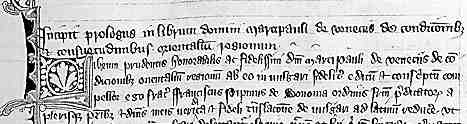 Incipit prologus in librum domini marcipauli de venecijs de condicionibus
et consuetudinibus orientalium regionum
Librum prudentis honorabilis ac fidelissimi dni marcipauli de venecijs de co
dicionibz orientalium regionum ab eo in vulgari fideliter editum et conscriptum com
pellor ego frater franciscus pipinus de bononia ordinis frm predicatorum a
plerisque pribz et dnis meis veridica et fideli translacione de vulgari ad latinum reducere